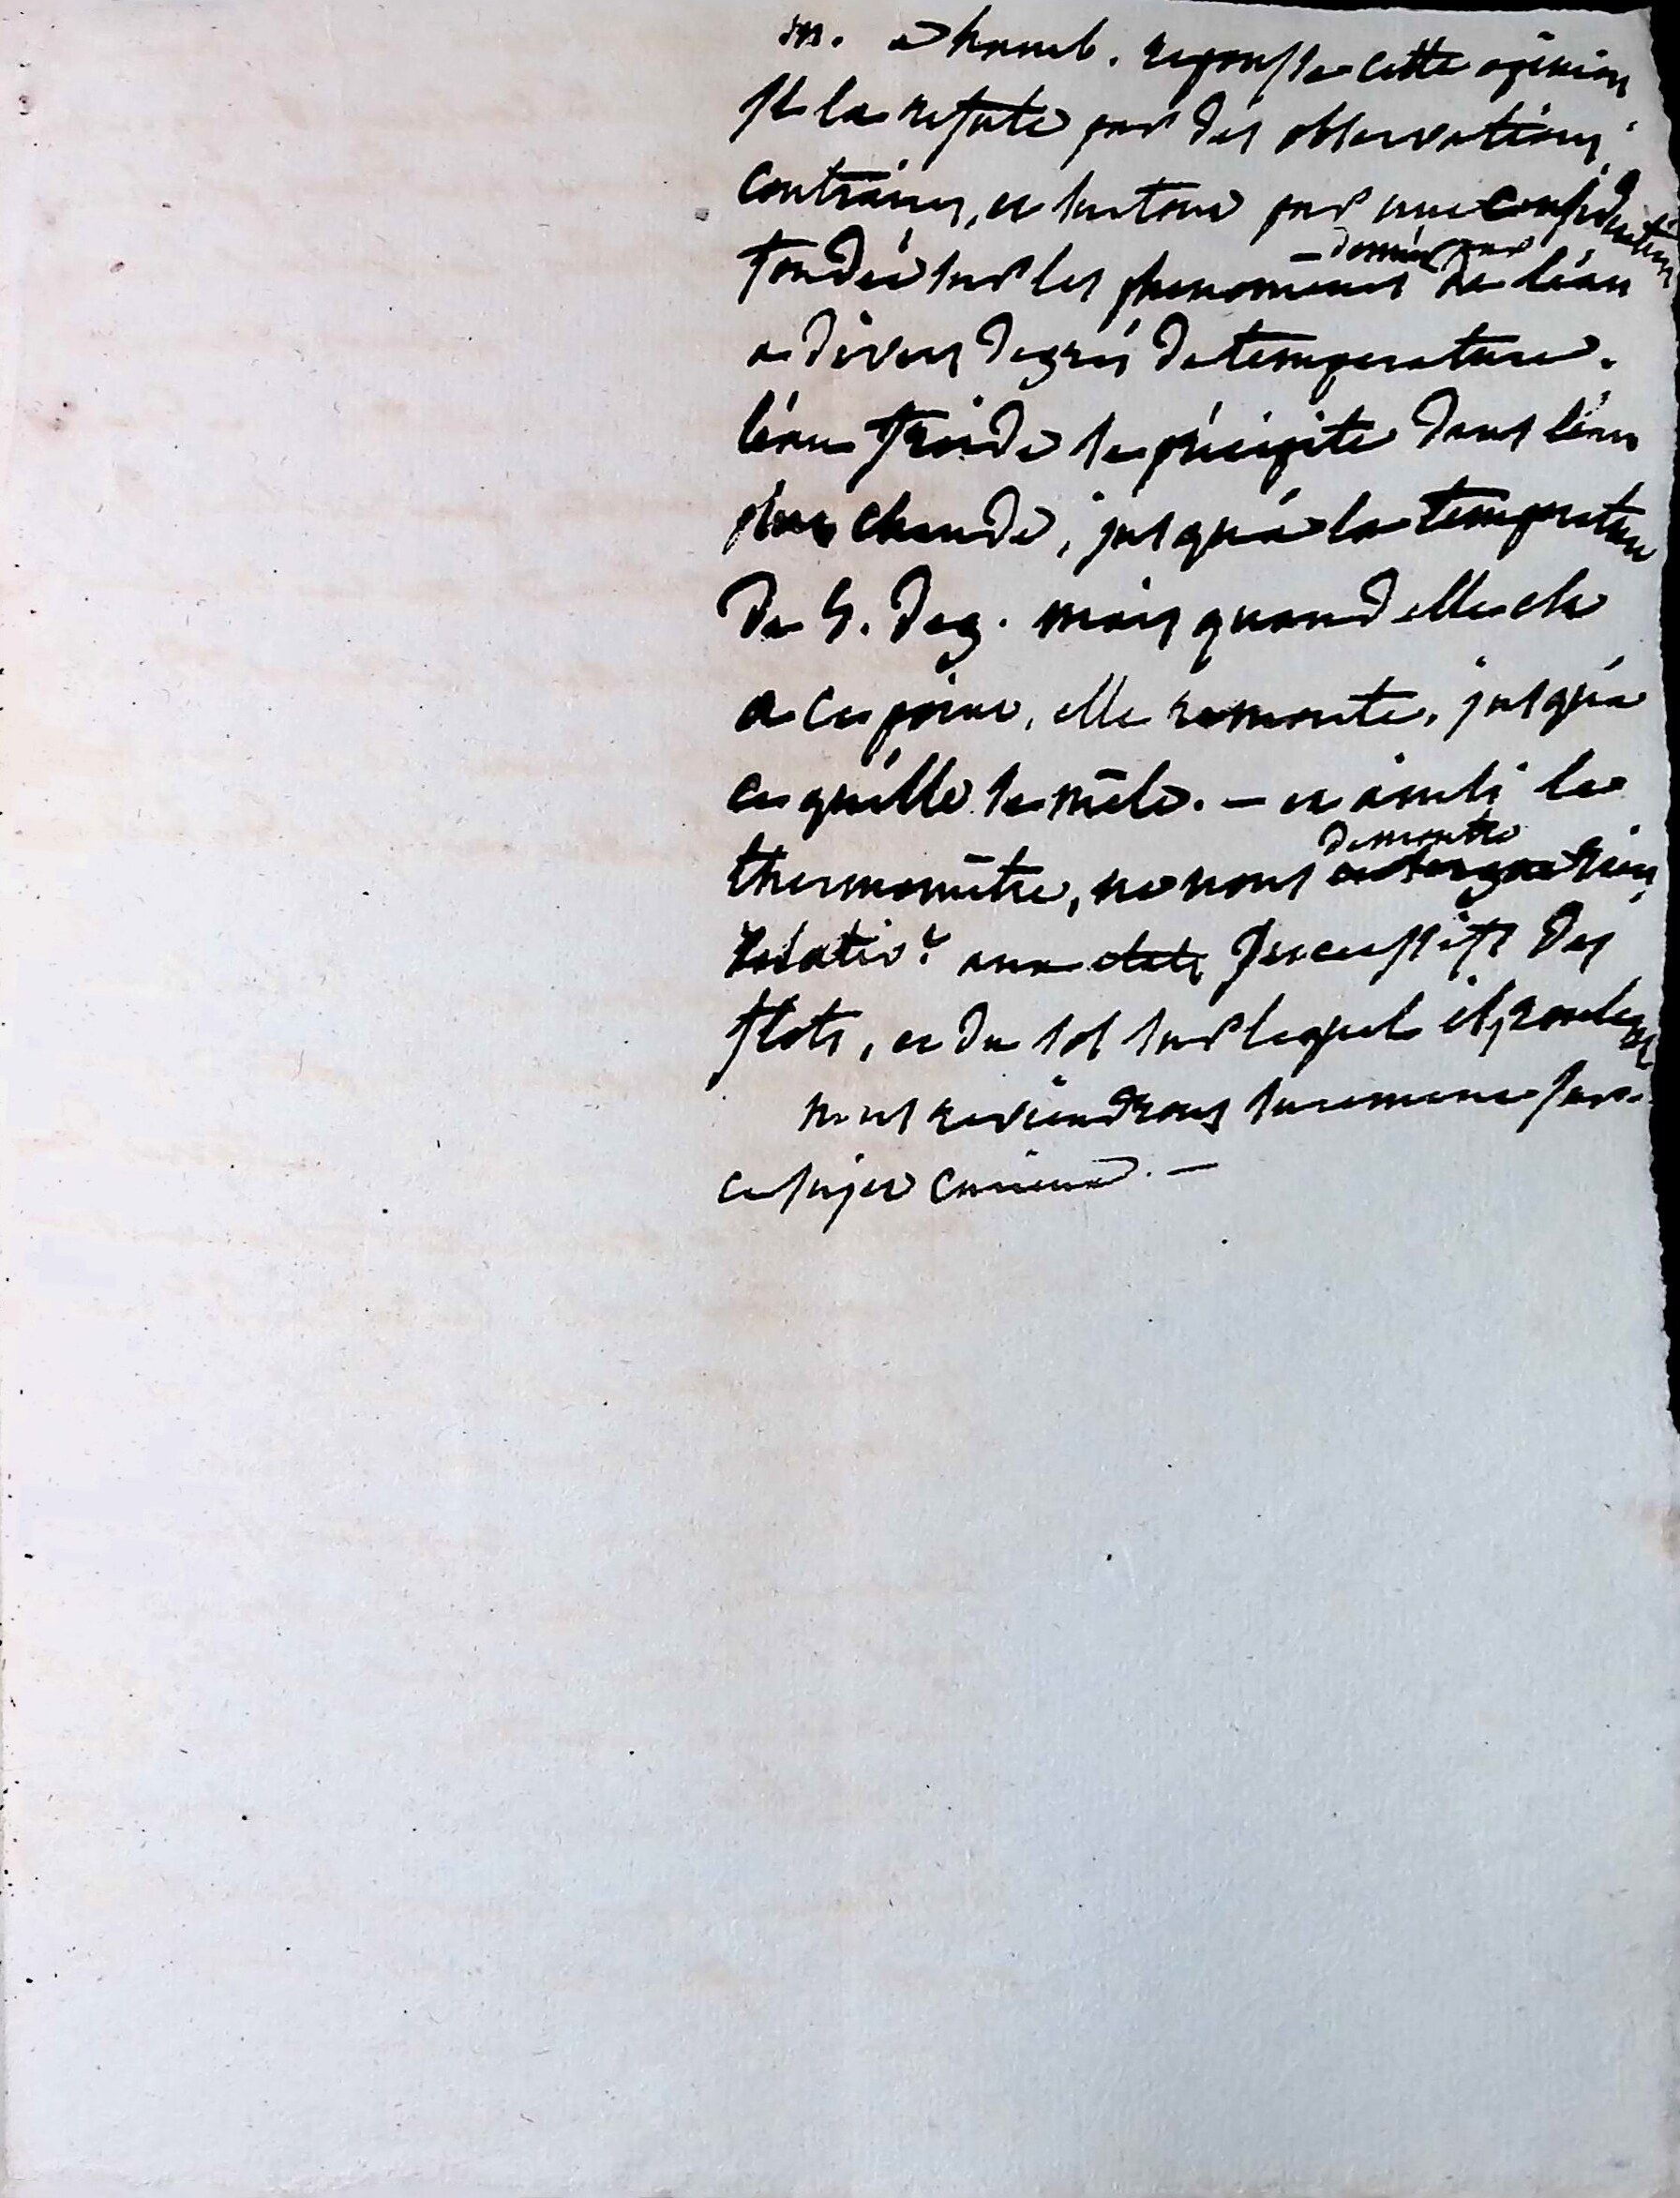 m. d humb. repousse cette opinion
Il la refute par des observations
contraires, et surtout par une consideration
fondée sur les phenomenes donnés par l'eau
a divers degrés de temperature.
l'eau froide se précipite dans l'eau
plus chaude, jusqu'à la temperature
de 4. deg. mais quand elle est
a ce point, elle remonte, jusqu'a
ce qu'elle se mêle. — et ainsi le
thermomètre, ne nous demontre rien
relativt aux etats successifs des
flots, et du sol sur lequel ils roulent
nous reviendrons surement sur
ce sujet curieux. —